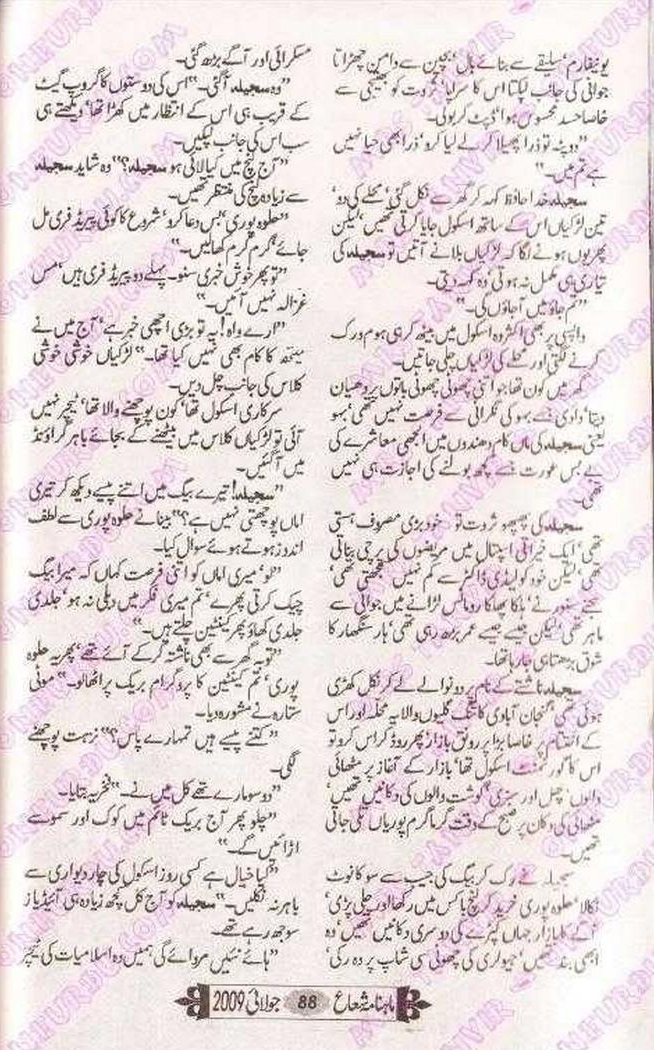 یونیفارم، سلیقے سے بنائے بال، بچپن سے دامن چھڑاتا
جوانی کی جانب لپکتا اس کا سراپا، ثروت کو بھتیجی سے
خاصا حسد محسوس ہوا، ڈپٹ کر بولی۔
"دوپٹہ تو ذرا پھیلا کر لے لیا کرو، ذرا بھی حیا نہیں
ہے تم میں۔"
سجیلہ خدا حافظ کہہ کر گھر سے نکل گئی، محلے کی دو،
تین لڑکیاں اس کے ساتھ اسکول جایا کرتی تھیں، لیکن
پھر یوں ہونے لگا کہ لڑکیاں بلانے آتیں تو سجیلہ کی
تیاری ہی مکمل نہ ہوتی، وہ کہہ دیتی۔
"تم جاؤ میں آجاؤں گی۔"
واپسی پر بھی اکثر وہ اسکول میں بیٹھ کر ہی ہوم ورک
کرنے لگتی اور محلے کی لڑکیاں چلی جاتیں۔
گھر میں کون تھا جو اتنی چھوٹی چھوٹی باتوں پر دھیان
دیتا، دادی جسے بہو کی نگرانی سے فرصت نہیں تھی، بہو
یعنی سجیلہ کی ماں کام دھندوں میں الجھی معاشرے کی
بے بس عورت جسے کچھ بولنے کی اجازت ہی نہیں
تھی۔
سجیلہ کی پھپھو ثروت تو خود بڑی مصروف ہستی
تھی، ایک خیراتی اسپتال میں مریضوں کی پرچی بناتی
تھی، لیکن خود کو لیڈی ڈاکٹر سے کم نہیں سمجھتی تھی،
بننے سنورنے، ہلکا پھلکا رومانس لڑانے میں جوانی سے
ماہر تھی، لیکن جیسے جیسے عمر بڑھ رہی تھی، ہار سنگھار کا
شوق بڑھتا ہی جا رہا تھا۔
سجیلہ ناشتے کے نام پر دو نوالے لے کر نکل کھڑی
ہوئی تھی، گنجان آبادی کا تنگ گلیوں والا یہ محلہ اور اس
کے اختتام پر خاصا بڑا پر رونق بازار، پھر روڈ کراس کرو تو
اس کا گورنمنٹ اسکول تھا، بازار کے آغاز پر مٹھائی
والوں، پھل اور سبزی، گوشت والوں کی دکانیں تھیں،
مٹھائی کی دکان پر صبح کے وقت گرما گرم پوریاں تلی جاتی
تھیں۔
سجیلہ نے رک کر بیگ کی جیب سے سو کا نوٹ
نکالا، حلوہ پوری خرید کر لنچ باکس میں رکھا اور چلی پڑی،
آگے کا بازار جہاں کپڑے کی دوسری دکانیں تھیں، وہ
ابھی بند تھیں، جیولری کی چھوٹی سی شاپ پر وہ رکی،
مسکرائی اور آگے بڑھ گئی۔
"وہ سجیلہ آگئی۔" اس کی دوستوں کا گروپ گیٹ
کے قریب ہی اس کے انتظار میں کھڑا تھا، دیکھتے ہی
سب اس کی جانب لپکیں۔
"آج لنچ میں کیا لائی ہو سجیلہ؟" وہ شاید سجیلہ
سے زیادہ لنچ کی منتظر تھیں۔
"حلوہ پوری، بس دعا کرو، شروع کا کوئی پیریڈ فری مل
جائے، گرم گرم کھالیں۔"
"تو پھر خوش خبری سنو۔ پہلے دو پیریڈ فری ہیں، مس
غزالہ نہیں آئیں۔"
"ارے واہ! یہ تو بڑی اچھی خبر ہے، آج میں نے
میتھ کا کام بھی نہیں کیا تھا۔" لڑکیاں خوشی خوشی
کلاس کی جانب چل دیں۔
سرکاری اسکول تھا، کون پوچھنے والا تھا، ٹیچر نہیں
آئی تو لڑکیاں کلاس میں بیٹھنے کے بجائے باہر گراؤنڈ
میں آگئیں۔
"سجیلہ! تیرے بیگ میں اتنے پیسے دیکھ کر تیری
اماں پوچھتی نہیں ہے؟" بینا نے حلوہ پوری سے لطف
اندوز ہوتے ہوئے سوال کیا۔
"لو، میری اماں کو اتنی فرصت کہاں کہ میرا بیگ
چیک کرتی پھرے، تم میری فکر میں دبلی نہ ہو، جلدی
جلدی کھاؤ پھر کینٹین چلتے ہیں۔"
"توبہ گھر سے بھی ناشتہ کرکے آئے تھے، پھر یہ حلوہ
پوری، تم کینٹین کا پروگرام بریک پر اٹھالو۔" موٹی
ستارہ نے مشورہ دیا۔
"کتنے پیسے ہیں تمہارے پاس؟" نزہت پوچھنے
لگی۔
"دو سو مارے تھے کل میں نے۔" فخریہ بتایا۔
"چلو پھر آج بریک ٹائم میں کوک اور سموسے
اڑائیں گے۔"
"کیا خیال ہے کسی روز اسکول کی چار دیواری سے
باہر نہ نکلیں۔" سجیلہ کو آج کل کچھ زیادہ ہی آئیڈیاز
سوجھ رہے تھے۔
"ہائے نئیں مروائے گی ہمیں وہ اسلامیات کی ٹیچر
ماہنامہ شعاع 88 جولائی 2009